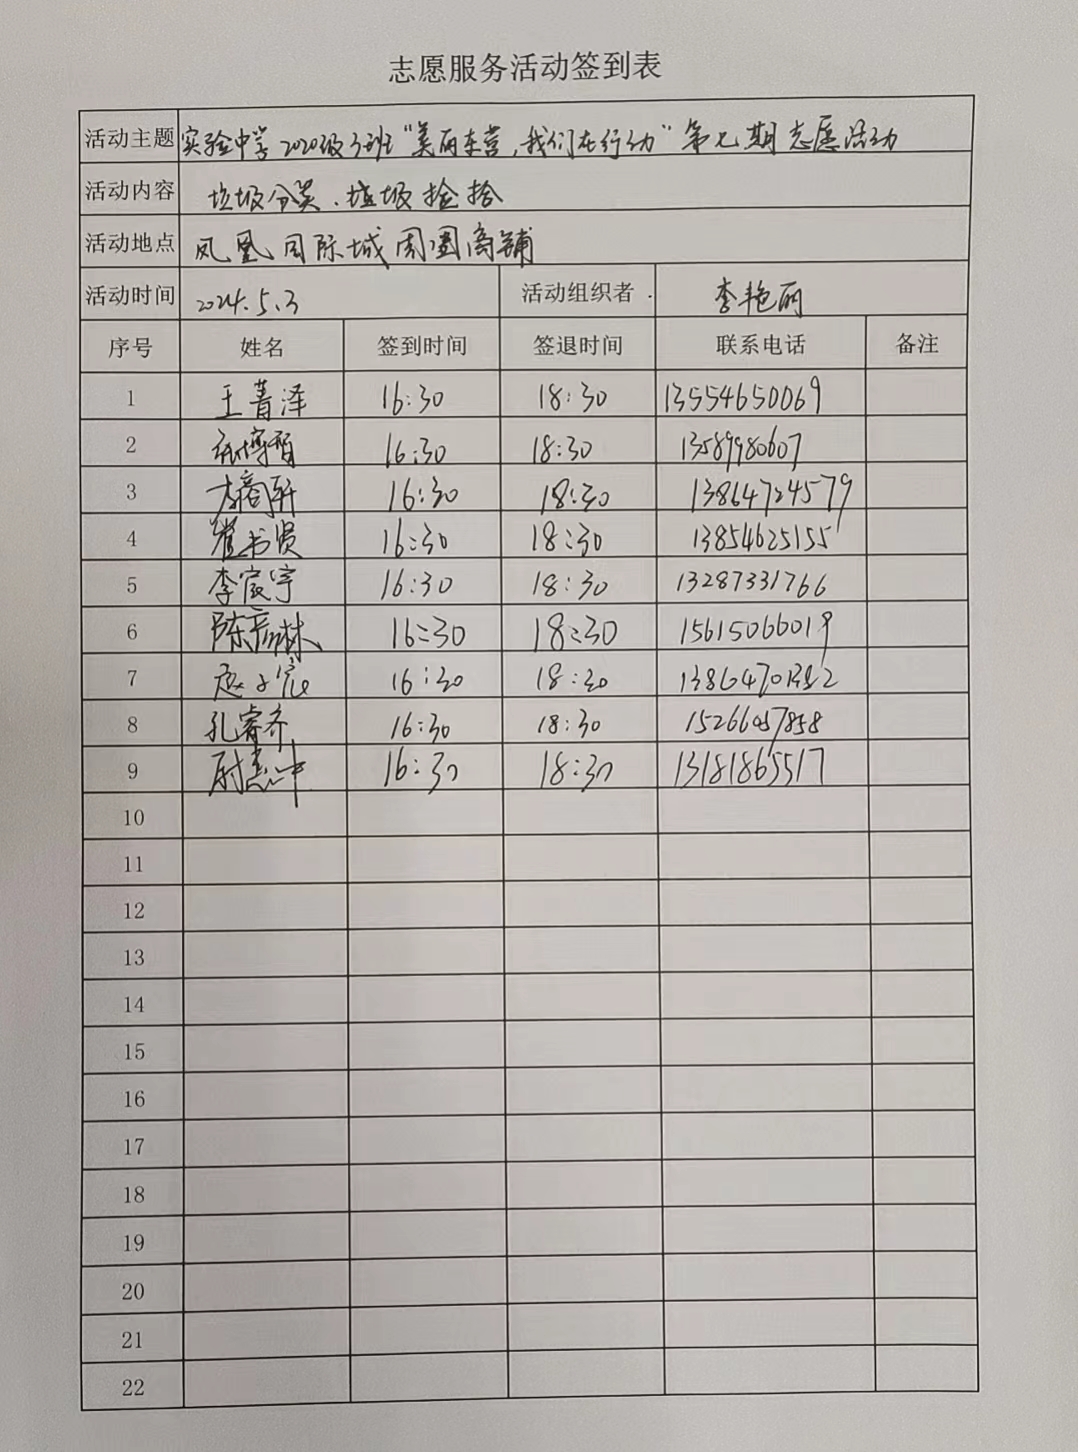 志愿服务活动签到表
活动主题 实验中学2020级3班“美丽东营,我们在行动”第七期志愿活动
活动内容 垃圾分类、垃圾捡拾
活动地点 凤凰国际城周围商铺
活动时间 2024.5.3 活动组织者 李艳丽
序号 姓名 签到时间 签退时间 联系电话 备注
1 王菁泽 16:30 18:30 13554650069
2 16:30 18:30 13589980607
3 16:30 18:30 13864724579
4 崔书贤 16:30 18:30 13854625155
5 李宸宇 16:30 18:30 13287331766
6 陈彦霖 16:30 18:30 15615066019
7 赵子宸 16:30 18:30
8 孔睿齐 16:30 18:30 15266457858
9 尉志中 16:30 18:30 13181865517
10
11
12
13
14
15
16
17
18
19
20
21
22